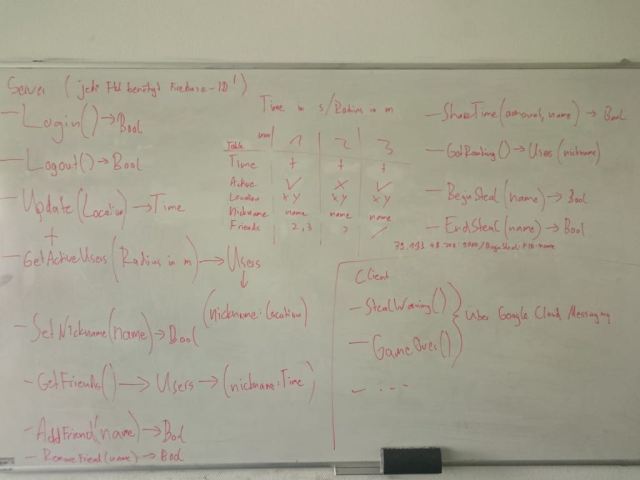 Server (jede Fkt benötigt Firebase-ID!)
- Login() → Bool
- Logout() → Bool
- Update (Location) → Time
+
- GetActiveUsers (Radius in m) → Users
↓
(nickname: Location)
- SetNickname (name) → Bool
- GetFriends() → Users → (nickname: Time)
- AddFriend (name) → Bool
- RemoveFriend (name) → Bool
Time in s/Radius in m
Table 1 2 3
Time t t t
Active ✓ x ✓
Location xy xy xy
Nickname name name name
Friends 2,3
- ShareTime (amount, name) → Bool
- GetRanking() → Users (nickname)
- BeginSteal (name) → Bool
- EndSteal (name) → Bool
Client
- StealWarning()
- GameOver()
} über Google Cloud Messaging
- ...